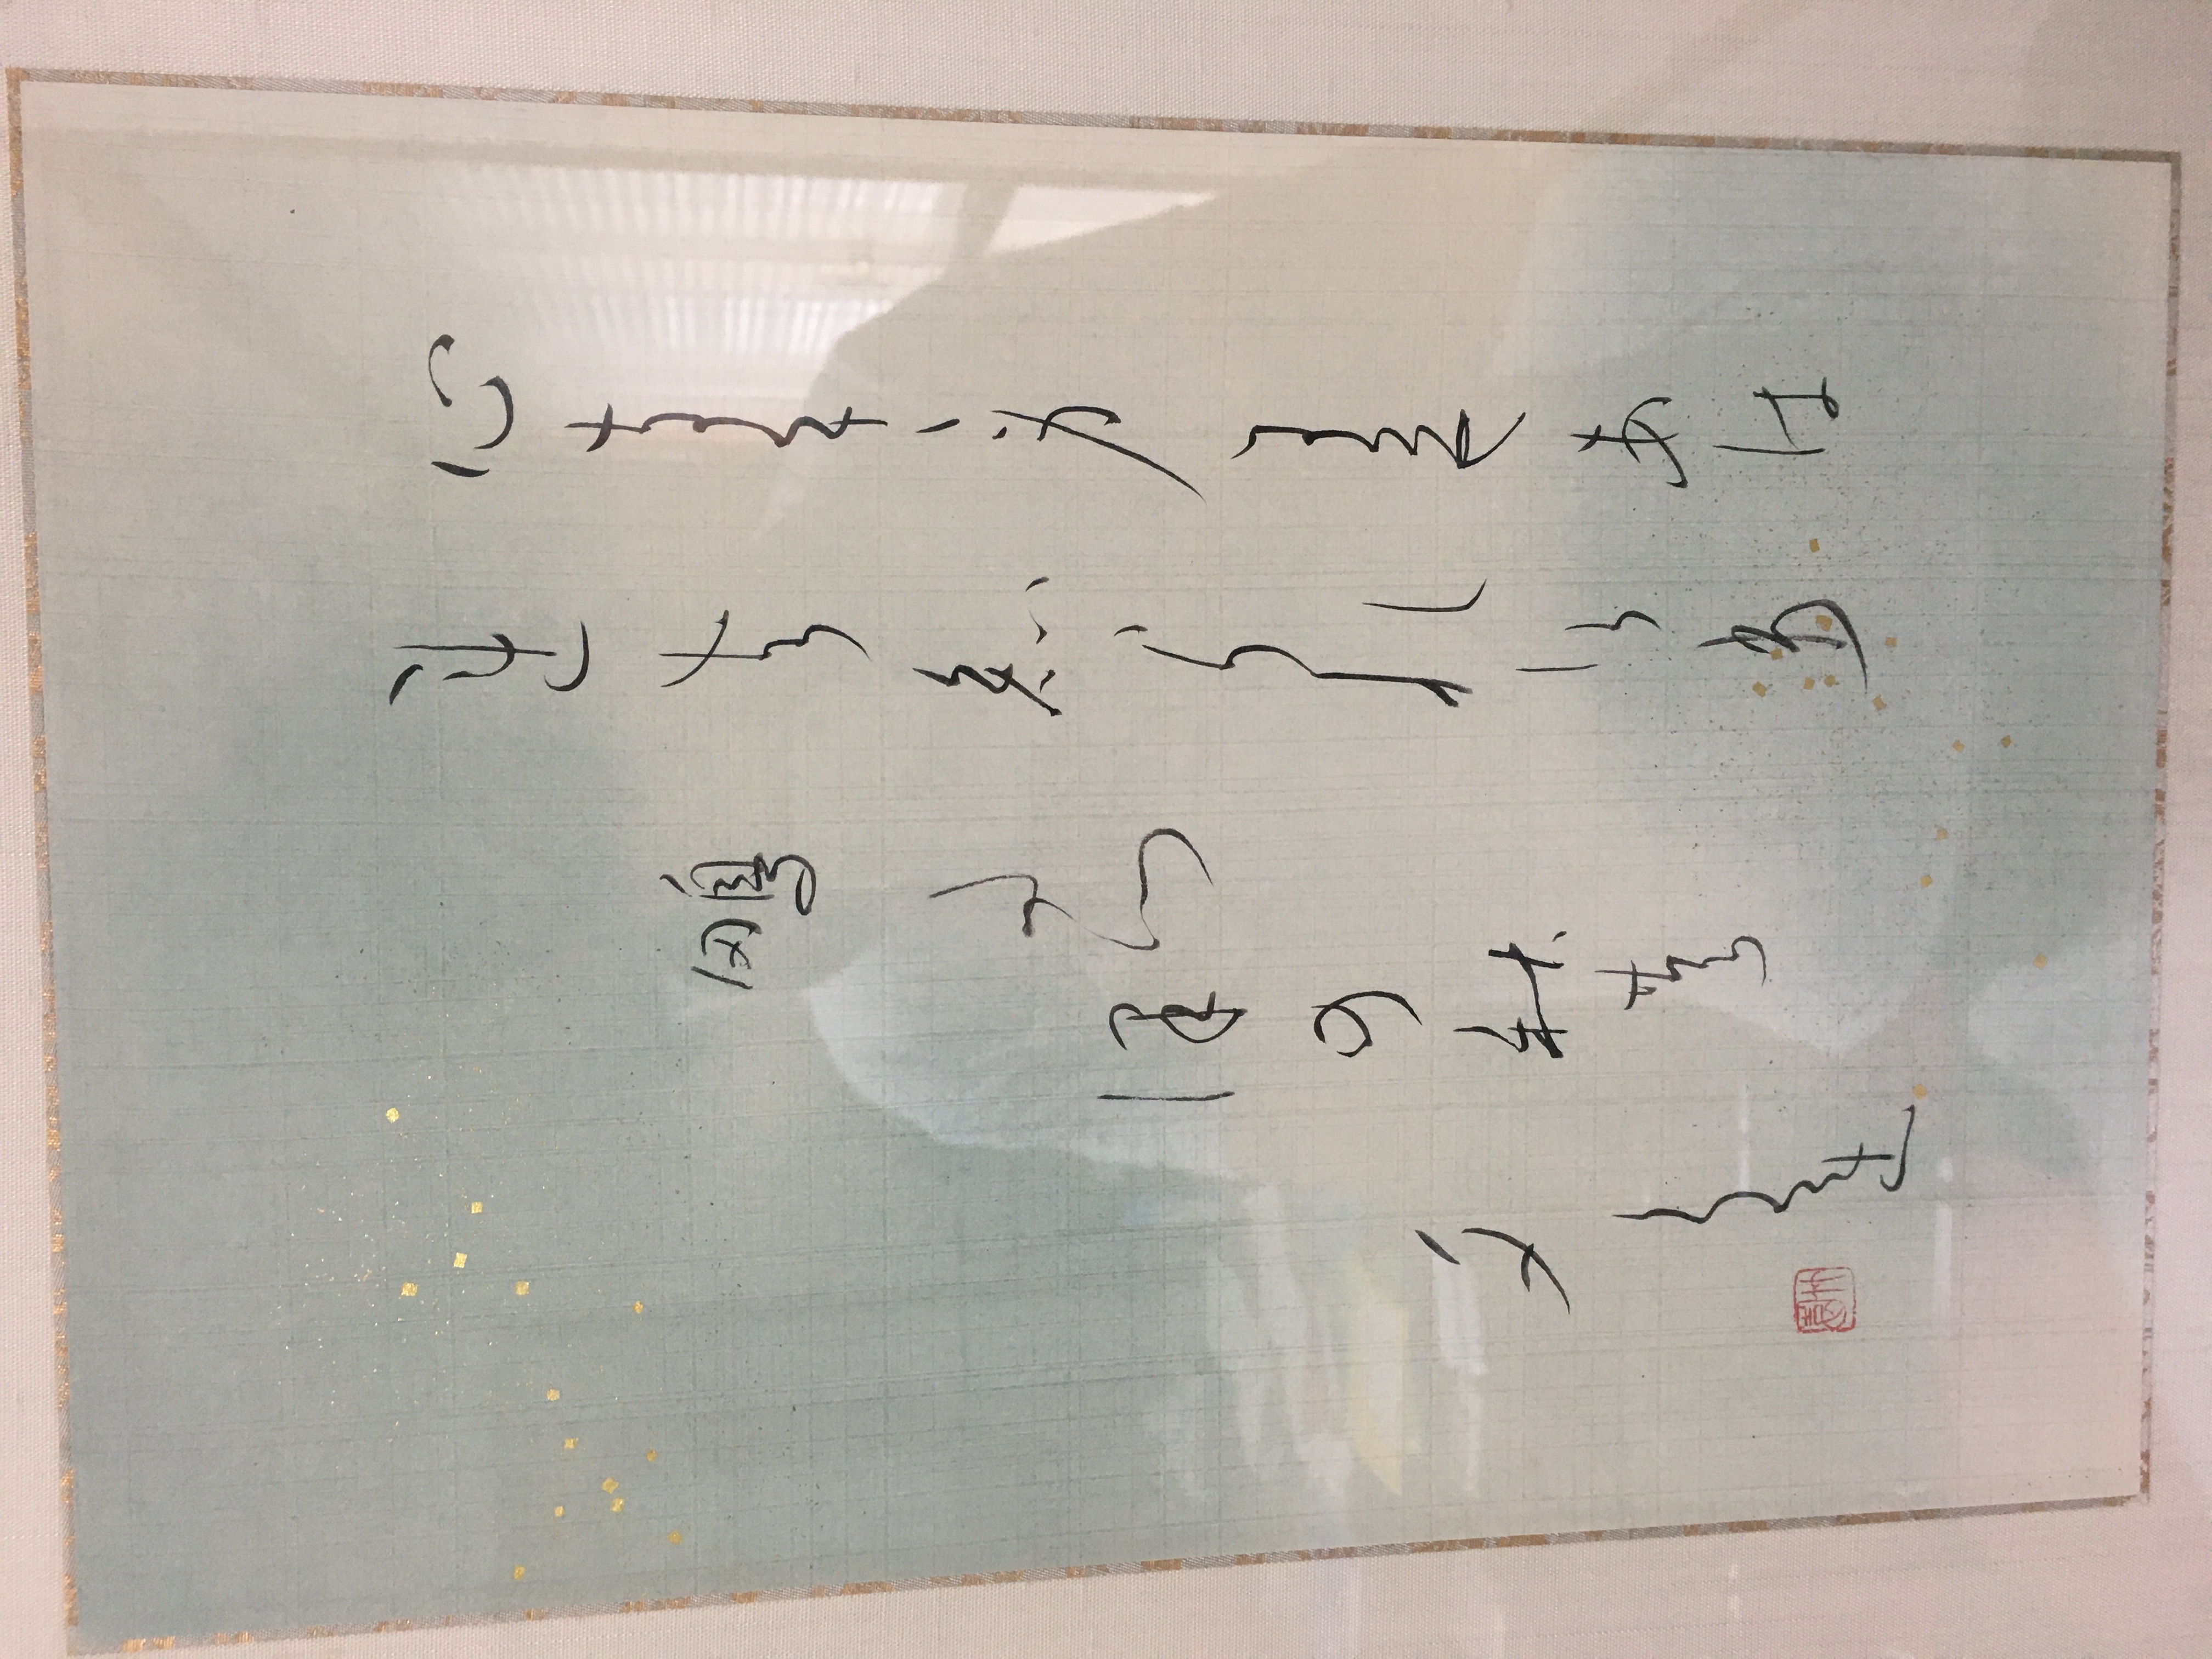 心なき身にもあは
れは知られけり
鴫たつ
澤の秋の
夕くれ